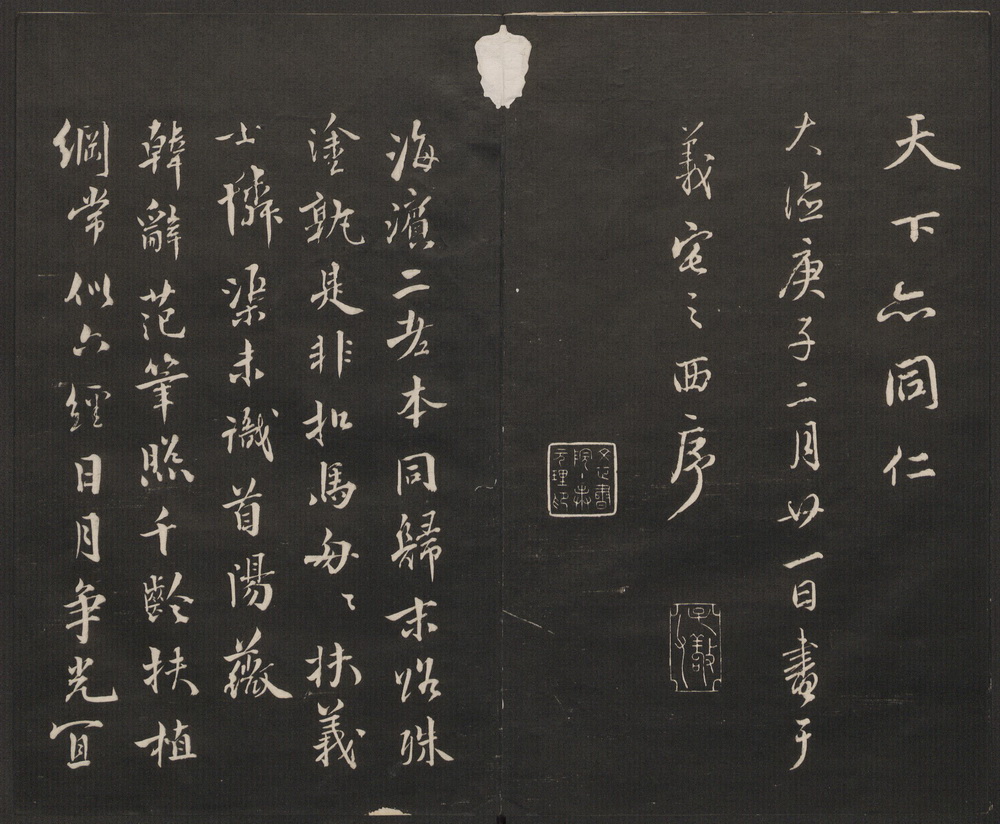 天下亦同仁
大德庚子二月廿一日書于
義宅之西序
海濱二老本同歸末路殊
塗孰是非扣馬匆〻扶義
士憐渠未識首陽薇
韓辭范筆照千齡扶植
綱常似六經日月争光宜